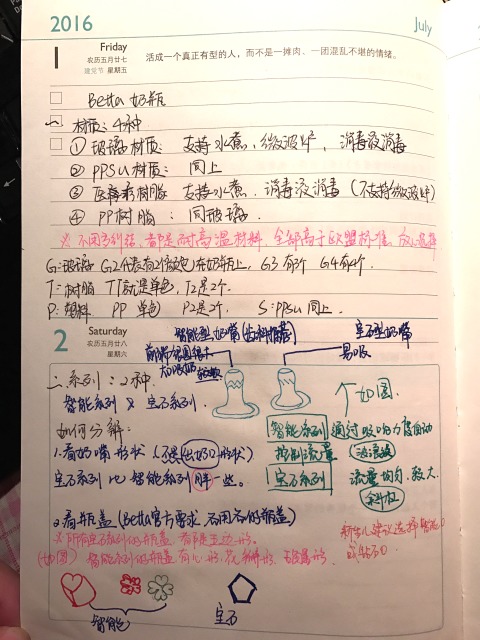 2016
July
1
Friday
农历五月廿七
建党节 星期五
活成一个真正有型的人，而不是一摊肉、一团混乱不堪的情绪。
Betta 奶瓶
一 材质：4种
① 玻璃材质： 支持水煮，微波炉，消毒液消毒
② PPSU材质： 同上
③ 医疗树脂 支持水煮、消毒液消毒（不支持微波炉）
④ PP树脂 ：同玻璃.
※ 不用多纠结，都是耐高温材料，全部高于欧盟标准，放心选择
G:玻璃 G2代表有2个 在奶瓶上，G3有3个 G4有4个.
T:树脂 T1就是单色，T2是2个.
P:塑料 PP 单色 P2是2个. S:PPSU 同上.
2
Saturday
农历五月廿八
星期六
智能型奶嘴（ 推荐）
宝石型奶嘴
易吸
二.系列：2种.
智能系列 & 宝石系列.
如何分辨：
1.看奶嘴形状（ 形状）
宝石系列比智能系列胖一些。
个 如图.
智能系列 通过吸吮力度自动
控制流量
宝石系列 流量均匀.较大.
2.看瓶盖（Betta官方需求 不同的瓶盖）
※ 所有宝石系列的瓶盖 都是五边形.
（如图） 智能系列的瓶盖 有心形，花瓣形
新生儿建议选择智能
智能
宝石